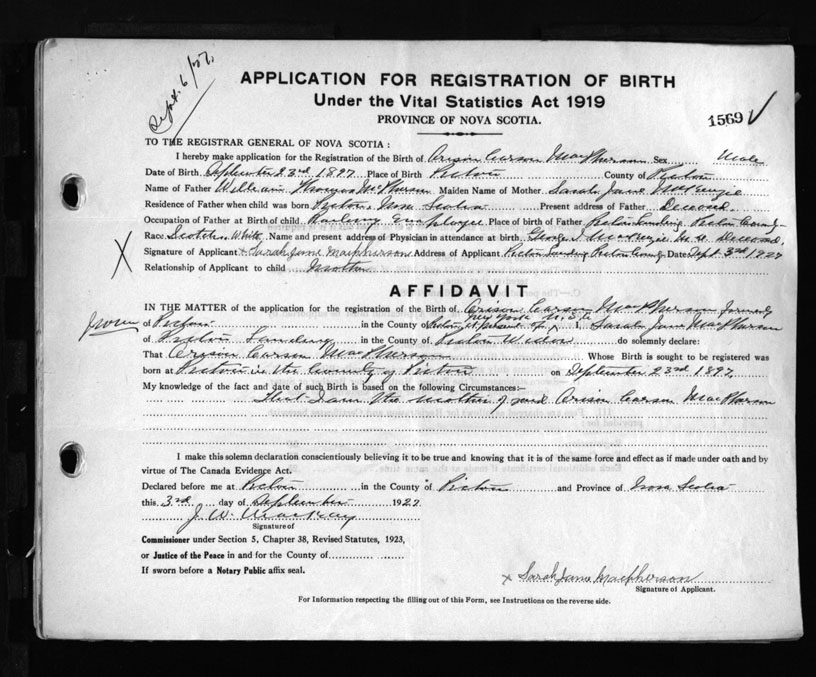 Sept. 6/27
APPLICATION FOR REGISTRATION OF BIRTH
Under the Vital Statistics Act 1919
PROVINCE OF NOVA SCOTIA.
1569
TO THE REGISTRAR GENERAL OF NOVA SCOTIA :
I hereby make application for the Registration of the Birth of Orison Carson MacPherson Sex Male
Date of Birth September 23rd 1897 Place of Birth Pictou County of Pictou
Name of Father William Thomas McPherson Maiden Name of Mother Sarah Jane MacKenzie
Residence of Father when child was born Pictou, Nova Scotia Present address of Father Deceased.
Occupation of Father at Birth of child Railway Employee Place of birth of Father Pictou Landing Pictou County
Race Scotch, White Name and present address of Physician in attendance at birth George I MacKenzie M D Deceased.
X Signature of Applicant x Sarah Jane Macpherson Address of Applicant Pictou Landing Pictou County Date Sept 3rd 1927
Relationship of Applicant to child Mother
AFFIDAVIT
IN THE MATTER of the application for the registration of the Birth of Orison Carson MacPherson formerly
of Pictou in the County of Pictou, at present of New York U.S. I, Sarah Jane MacPherson
of Pictou Landing in the County of Pictou Widow do solemnly declare:
That Orison Carson MacPherson Whose Birth is sought to be registered was
born at Pictou in the County of Pictou on September 23rd 1897
My knowledge of the fact and date of such Birth is based on the following Circumstances:—
That I am the mother of said Orison Carson MacPherson
I make this solemn declaration conscientiously believing it to be true and knowing that it is of the same force and effect as if made under oath and by
virtue of The Canada Evidence Act.
Declared before me at Pictou in the County of Pictou and Province of Nova Scotia
this 3rd day of September 1927
J. W. MacKay
Signature of
Commissioner under Section 5, Chapter 38, Revised Statutes, 1923,
or Justice of the Peace in and for the County of
If sworn before a Notary Public affix seal.
x Sarah Jane Macpherson
Signature of Applicant.
For Information respecting the filling out of this Form, see Instructions on the reverse side.